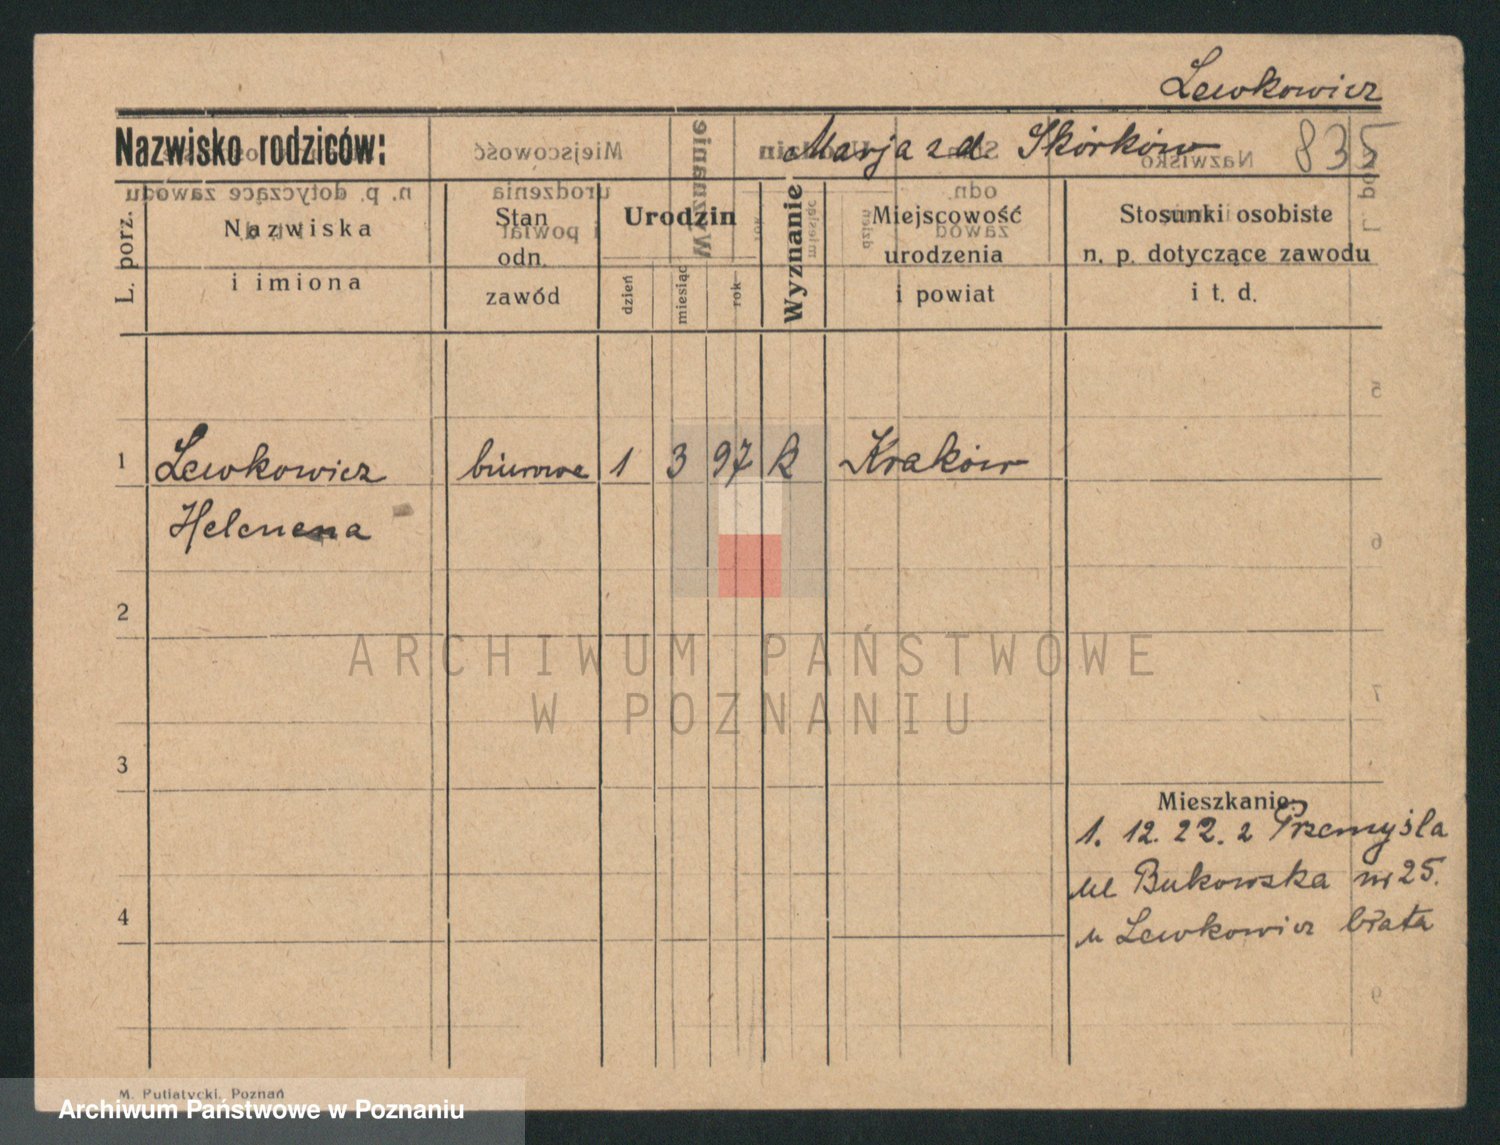 Lewkowicz
Nazwisko rodziców: Marja z d. Skórków 835
L. porz.
Nazwiska
i imiona
Stan
odn.
zawód
Urodzin
dzień
miesiąc
rok
Wyznanie
Miejscowość
urodzenia
i powiat
Stosunki osobiste
n. p. dotyczące zawodu
i t. d.
1 Lewkowicz biurowe 1 3 97 k Kraków
Helenena
2
3
Mieszkanie:
1. 12. 22. z Przemyśla
ul Bukowska nr 25.
4
u Lewkowicz brata
ARCHIWUM PAŃSTWOWE
W POZNANIU
M. Putiatycki, Poznań
Archiwum Państwowe w Poznaniu